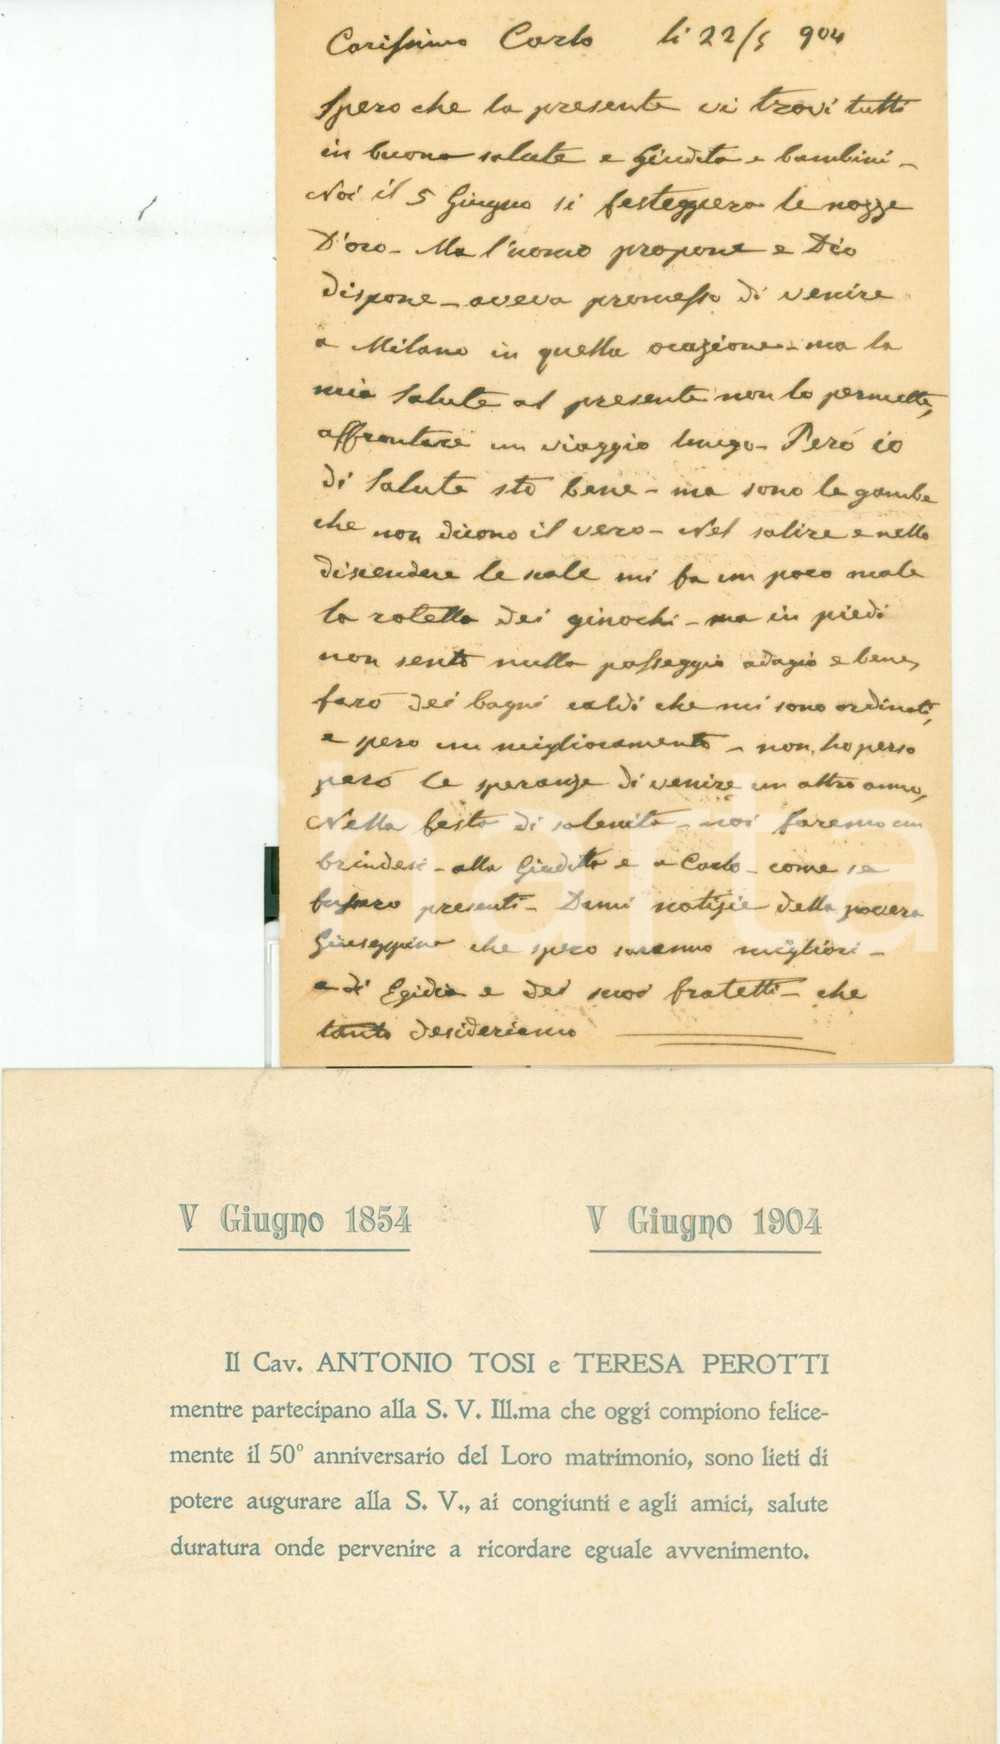 Carissimo Carlo li 22/5 904
Spero che la presente vi trovi tutti
in buona salute e Giudita e bambini -
Noi il 5 Giugno si festeggiera le nozze
D'oro - Ma l'uomo propone e Dio
dispone - aveva promesso di venire
a Milano in quella ocazione - ma la
mia salute al presente non lo permette,
affrontare un viaggio lungo - Peró io
di Salute stó bene - ma sono le gambe
che non dicono il vero - Nel salire e nello
discendere le scale mi fa un poco male
la rotella dei ginochi - ma in piedi
non sento nulla passeggio adagio e bene,
faró dei bagni caldi che mi sono ordinati,
e spero un miglioramento - non ho perso
peró le speranze di venire un altro anno,
Nella festa di solenita - noi faremo un
brindesi - alla Giuditta e a Carlo - come se
fussero presenti - Dami notizie della povera
Giuseppina che spero saranno migliori -
e di Egidia e dei suoi fratelli - che
tanto desideriamo
charta
V Giugno 1854 V Giugno 1904
Il Cav. ANTONIO TOSI e TERESA PEROTTI
mentre partecipano alla S. V. Ill.ma che oggi compiono felice-
mente il 50° anniversario del Loro matrimonio, sono lieti di
potere augurare alla S. V., ai congiunti e agli amici, salute
duratura onde pervenire a ricordare eguale avvenimento.